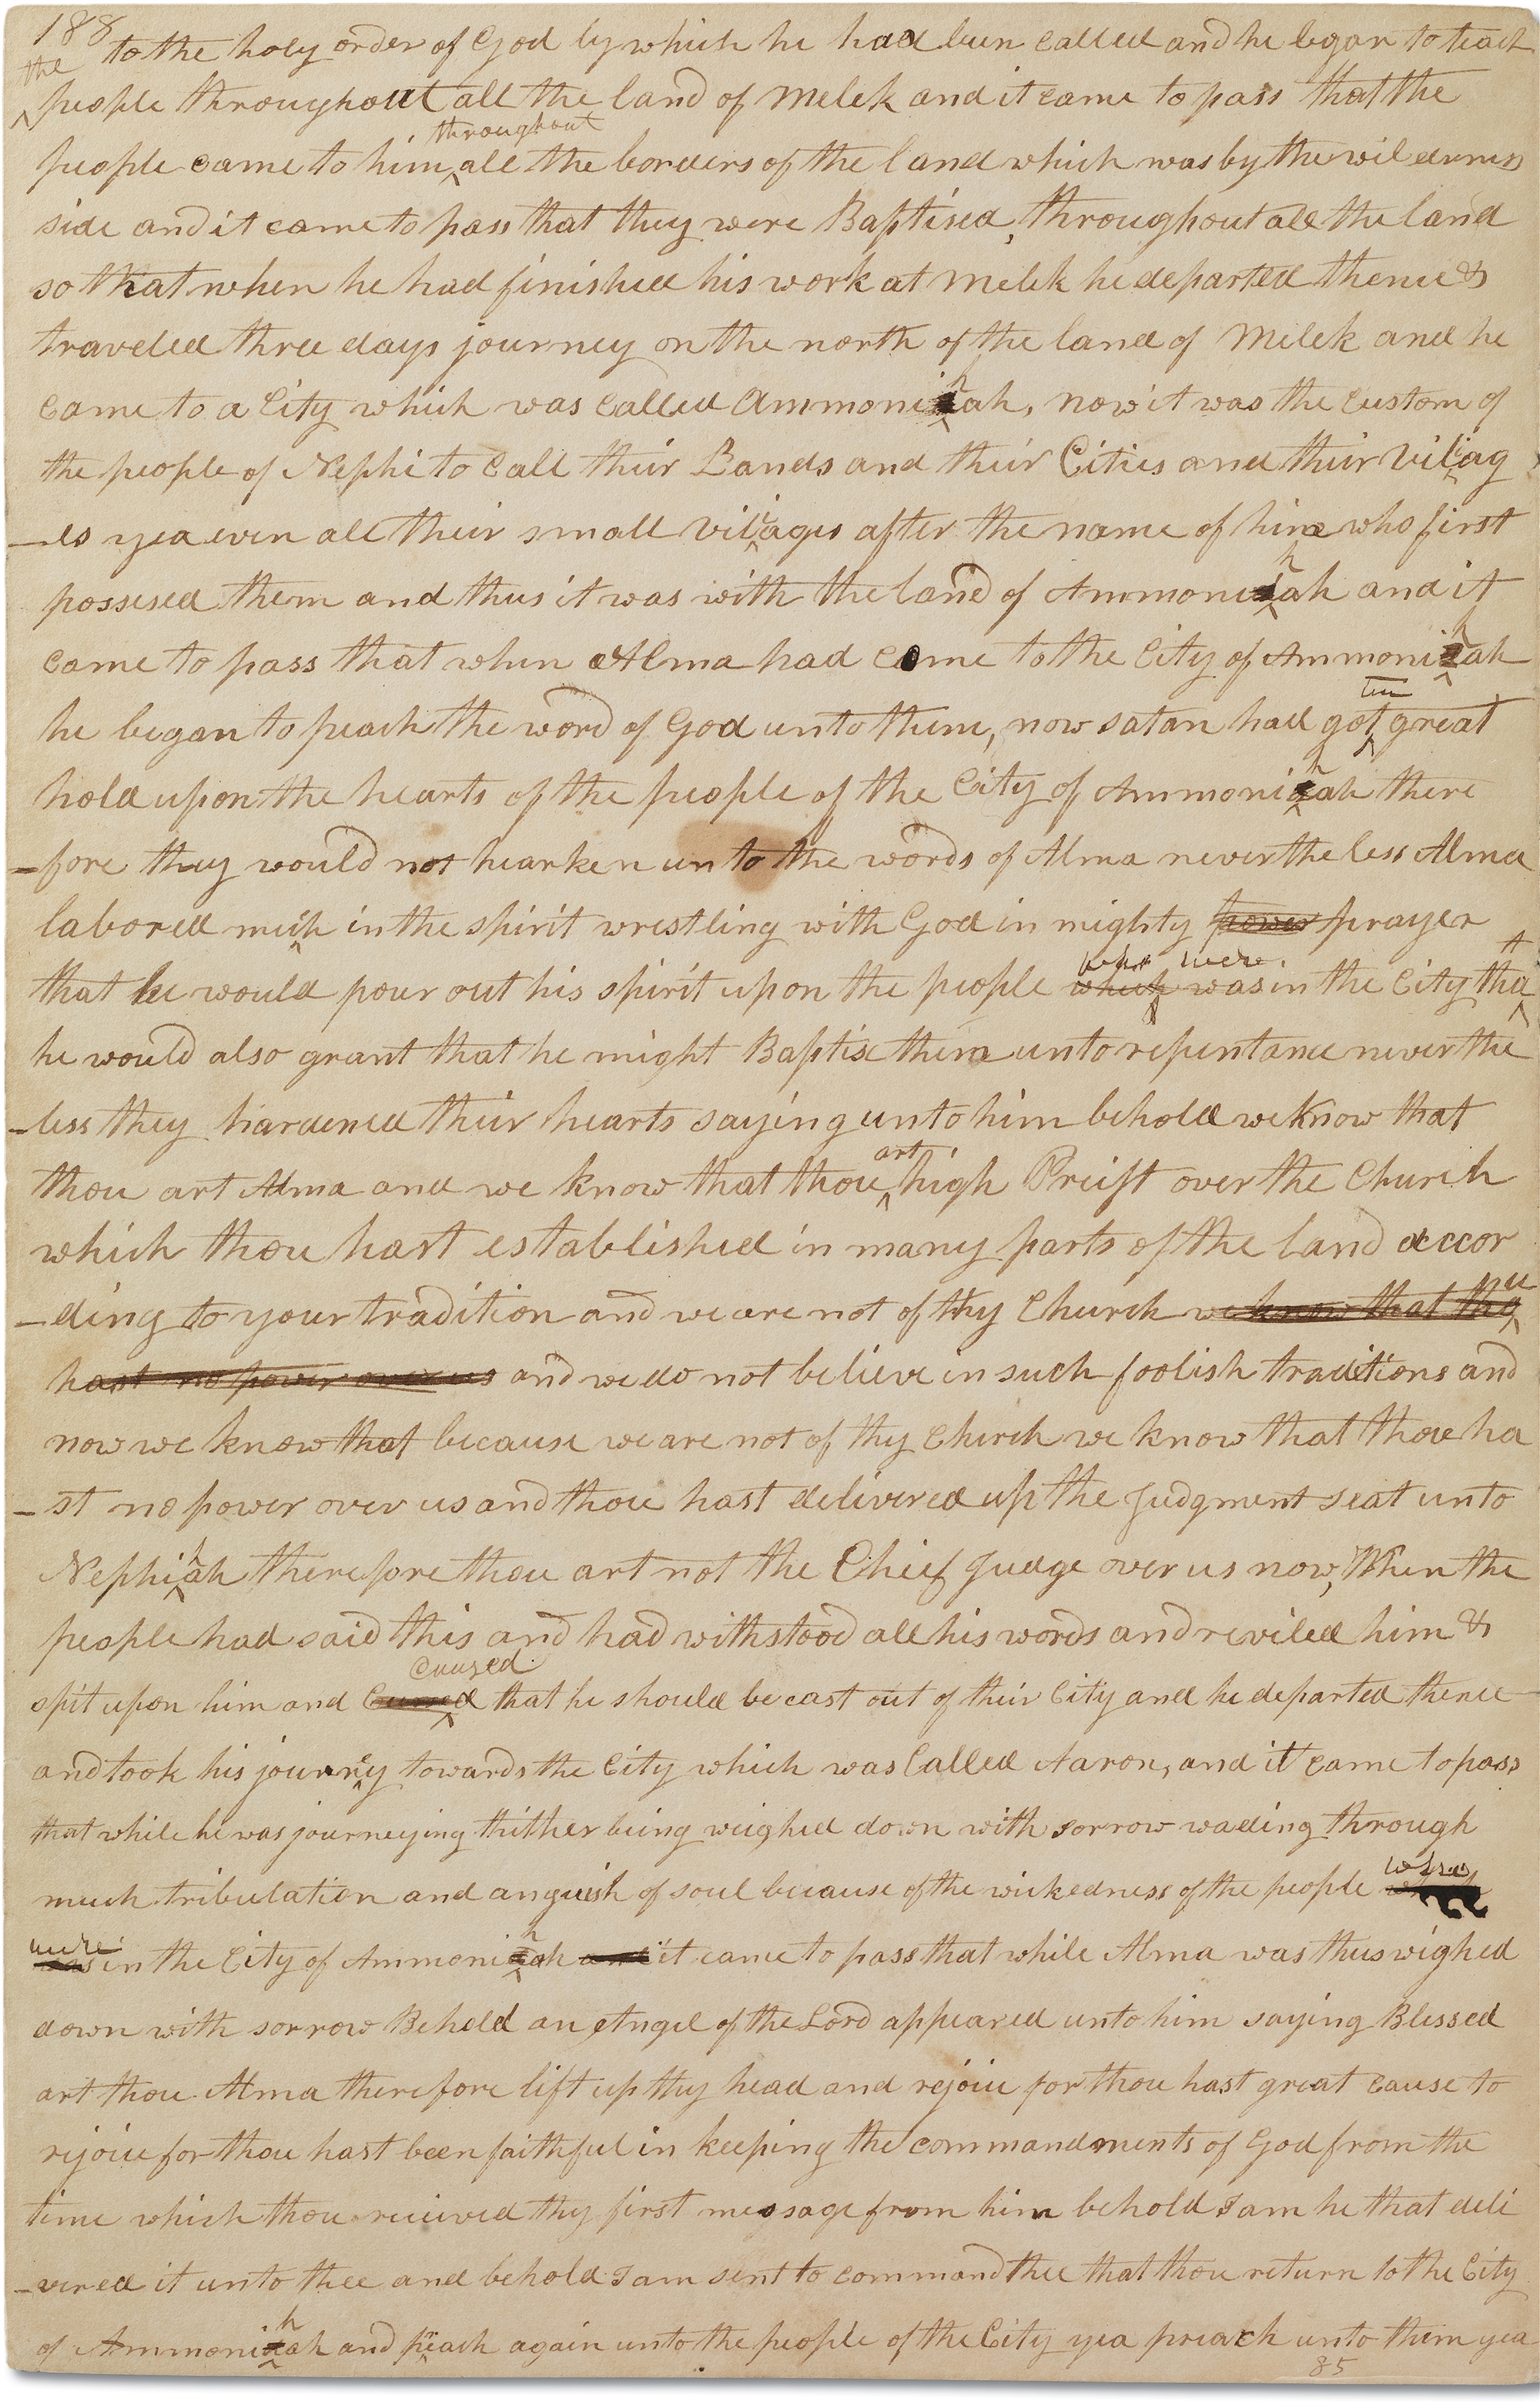 188 to the holy order of God by which he had been called and he began to teach
the people throughout all the land of Melek and it came to pass that the
throughout
people came to him all the borders of the land which was by the wilderness
side and it came to pass that they were Baptised, throughout all the land
so that when he had finished his work at Melek he departed thence &
traveled three days journey on the north of the land of Melek and he
h
came to a City which was called Ammoniah, now it was the custom of
the people of Nephi to call their Lands and their Cities and their villag
-es yea even all their small villages after the name of him who first
h
possesed them and thus it was with the land of Ammoniah and it
h
came to pass that when Alma had come to the City of Ammoniah
ten
he began to preach the word of God unto them, now satan had got great
h
hold upon the hearts of the people of the City of Ammoniah there
-fore they would not hearken unto the words of Alma nevertheless Alma
labored much in the spirit wrestling with God in mighty power prayer
who were t
that he would pour out his spirit upon the people which was in the City tha
he would also grant that he might Baptise them unto repentance never the
-less they hardened their hearts saying unto him behold we know that
art
thou art Alma and we know that thou high Preist over the Church
which thou hast established in many parts of the land accor
-ding to your tradition and we are not of thy Church we know that thou
hast no power over us and we do not believe in such foolish traditions and
now we know that because we are not of thy Church we know that thou ha
-st no power over us and thou hast delivered up the Judgment seat unto
h
Nephiah therefore thou art not the Chief Judge over us now, When the
people had said this and had withstood all his words and reviled him &
caused
spit upon him and that he should be cast out of their City and he departed thence
and took his journey towards the City which was Called Aaron, and it came to pass
that while he was journeying thither being weighed down with sorrow wading through
who
much tribulation and anguish of soul because of the wickedness of the people which
were h
was in the City of Ammoniah and it came to pass that while Alma was thus wighed
down with sorrow Behold an Angel of the Lord appeared unto him saying Blessed
art thou Alma therefore lift up thy head and rejoice for thou hast great cause to
rejoice for thou hast been faithful in keeping the commandments of God from the
time which thou received thy first message from him behold I am he that deli
-vered it unto thee and behold I am sent to command thee that thou return to the City
h
of Ammoniah and preach again unto the people of the City yea preach unto them yea
85